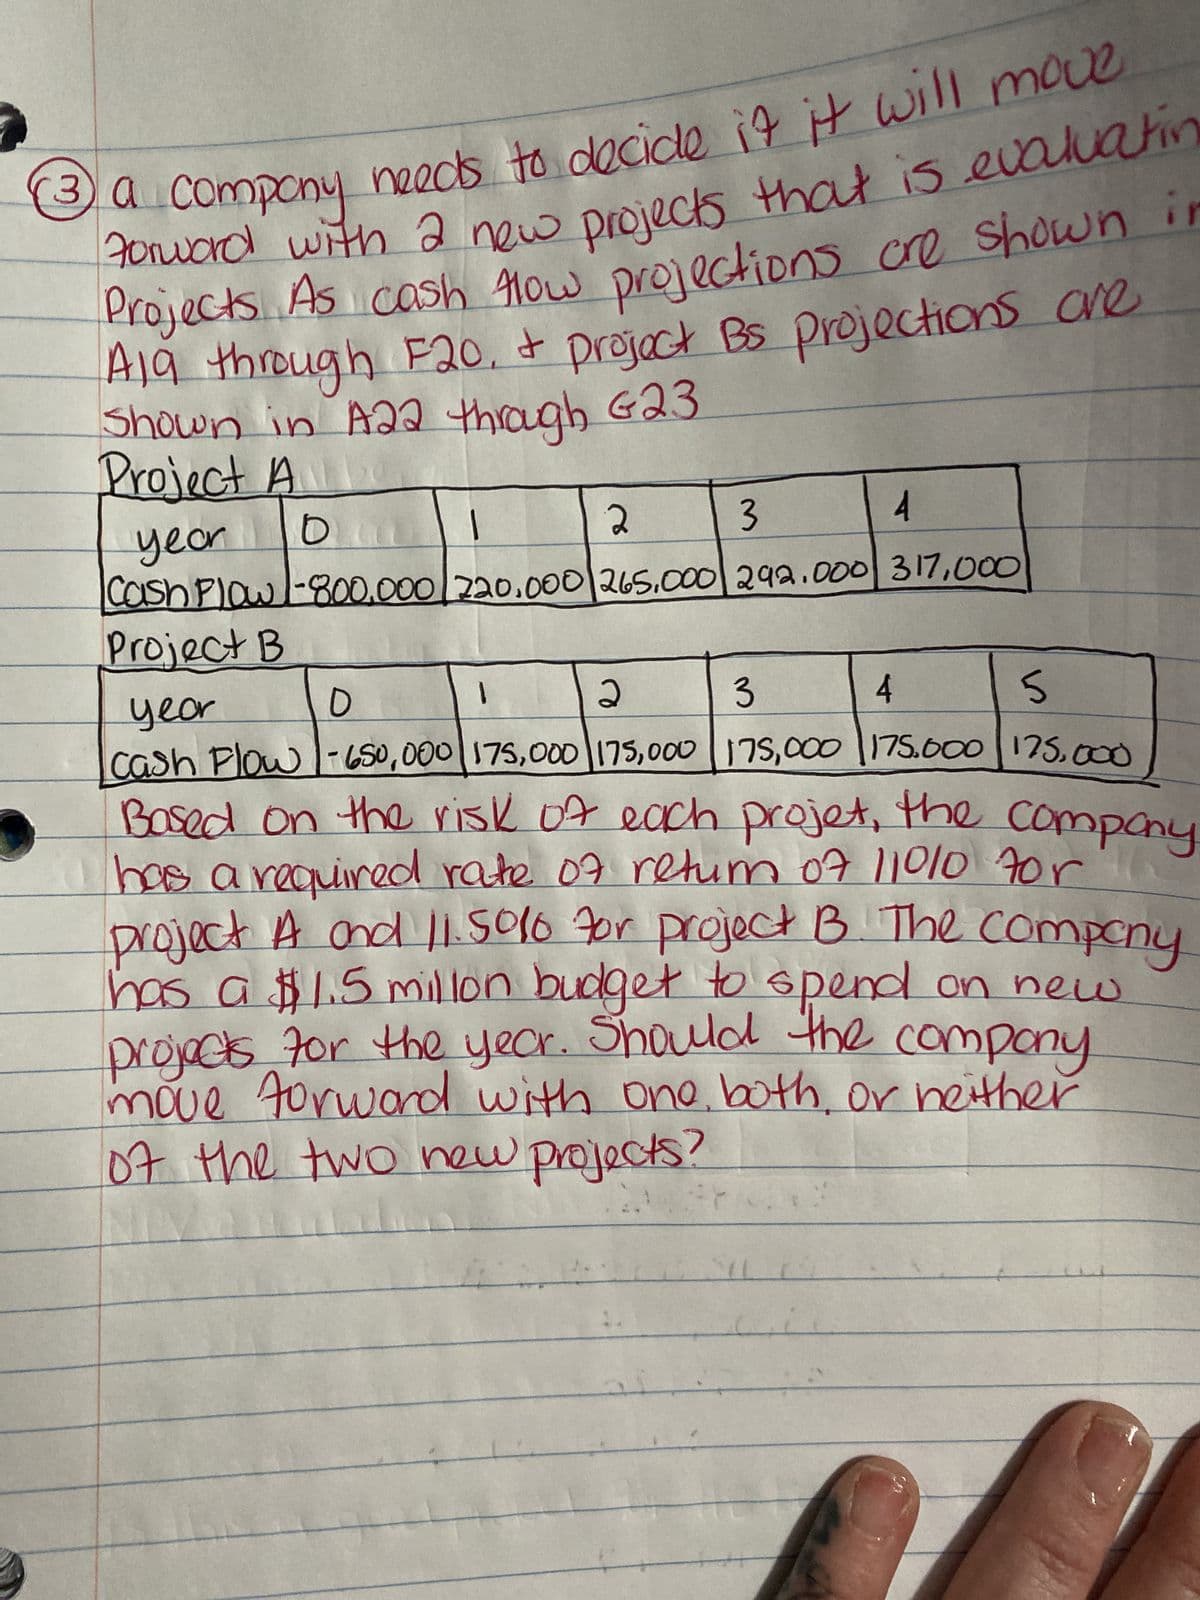 3 a company needs to decide if it will move
forward with 2 new projects that is evaluatin
Projects As cash flow projections are shown in
A19 through F20, + project Bs projections are
Shown in A22 through G23
Project A
year 0 1 2 3 4
Cash Flow -800,000 220,000 265,000 292,000 317,000
Project B
year 0 1 2 3 4 5
cash Flow -650,000 175,000 175,000 175,000 175,000 175,000
Based on the risk of each projet, the company
has a required rate of return of 11% for
project A and 11.5% for project B. The company
has a $1.5 millon budget to spend on new
projects for the year. Should the company
move forward with one, both, or neither
of the two new projects?